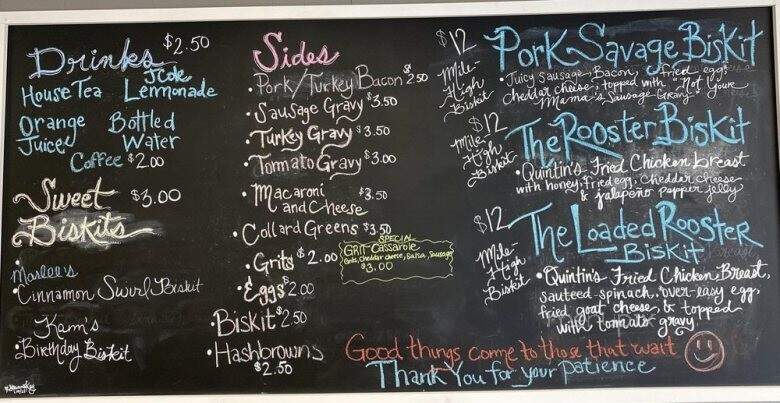 Drinks $2.50
House Tea JCole Lemonade
Orange Juice Bottled Water
Coffee $2.00
Sweet Biskits $3.00
Maslee's
• Cinnamon Swirl Biskit
Kam's
• Birthday Biskit
Sides
• Pork/Turkey Bacon $2.50
• Sausage Gravy $3.50
• Turkey Gravy $3.50
• Tomato Gravy $3.00
• Macaroni and Cheese $3.50
• Collard Greens $3.50
• Grits $2.00
• Eggs $2.00
• Biskit $2.50
• Hashbrowns $2.50
SPECIAL
GRIT Cassarole
Grits, Cheddar cheese, Salsa, Sausage
$3.00
$12 Pork Savage Biskit
Mile-High Biskit
• Juicy Sausage, Bacon, fried egg
cheddar cheese, topped with "Not Your
Mama's Sausage Gravy"
$12 The Rooster Biskit
Mile High Biskit
• Quintin's Fried Chicken breast
with honey, fried egg, cheddar cheese
& jalapeño pepper jelly
$12 The Loaded Rooster
Biskit
Mile-High Biskit
• Quintin's Fried Chicken Breast,
sauteed spinach, over-easy egg,
fried goat cheese, & topped
with tomato gravy
Good things come to those that wait
Thank You for your patience